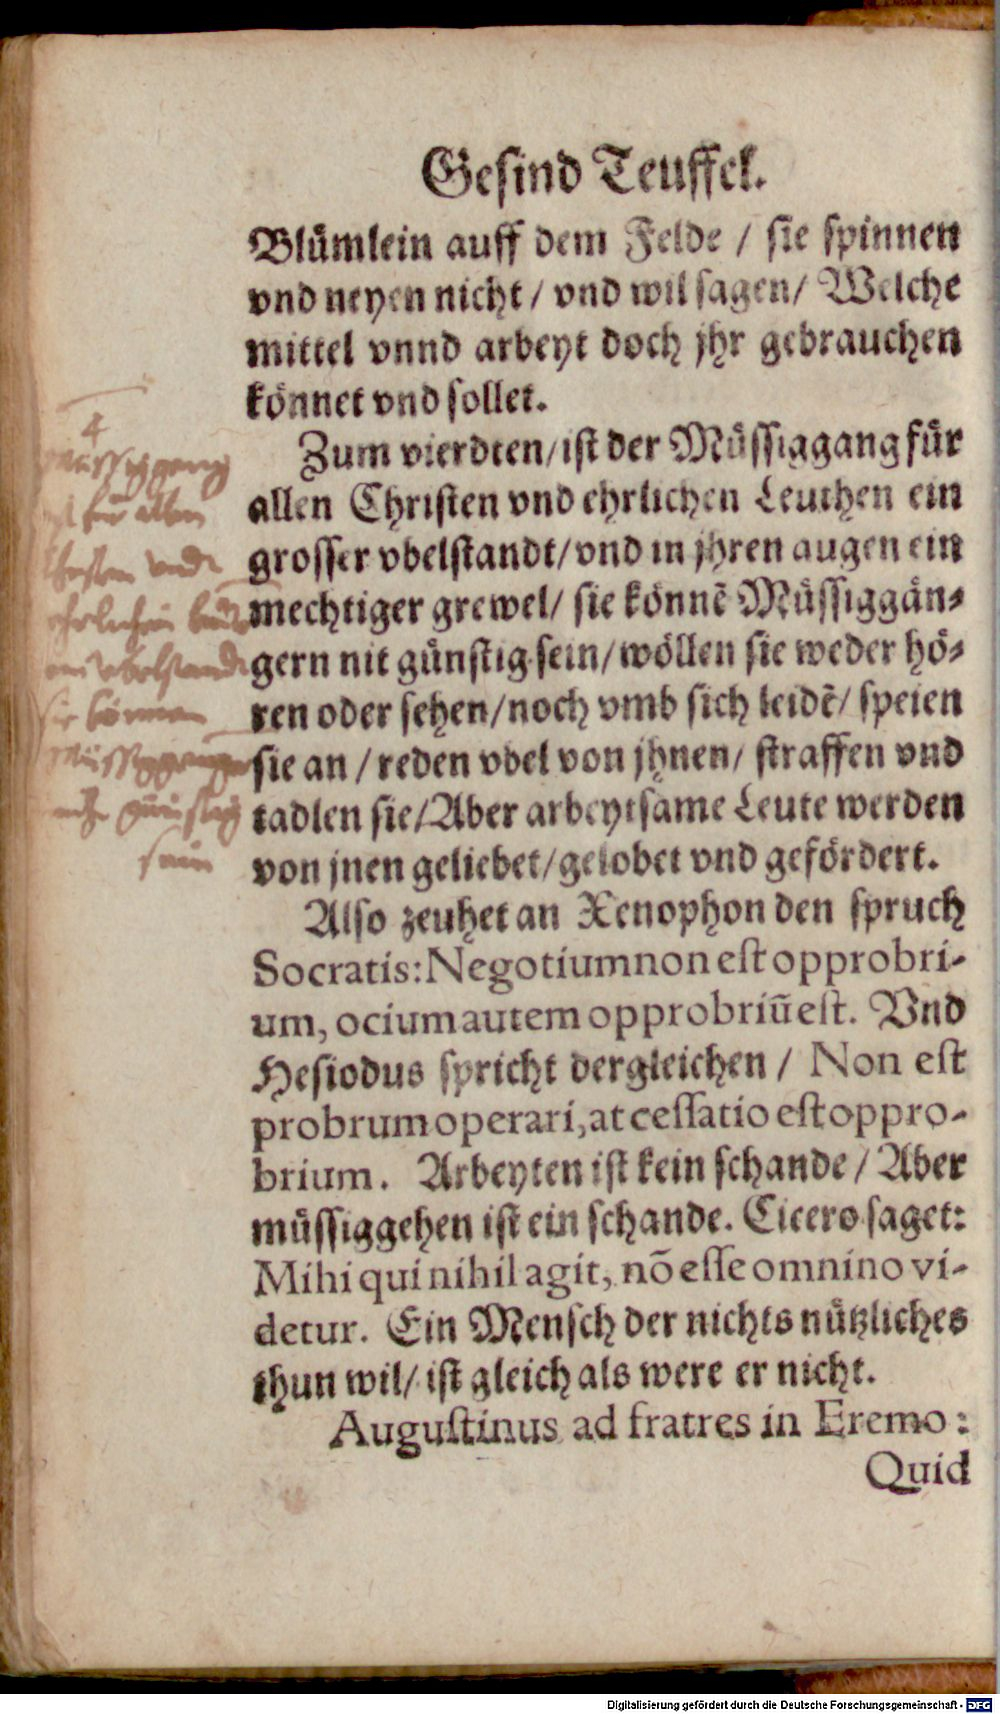 Gesind Teuffel.
Blümlein auff dem Felde / sie spinnen
vnd neyen nicht / vnd wil sagen / Welche
mittel vnnd arbeyt doch jhr gebrauchen
könnet vnd sollet.
Zum vierdten / ist der Müssiggang für
allen Christen vnd ehrlichen Leuthen ein
grosser vbelstandt / vnd in jhren augen ein
mechtiger grewel / sie könnẽ Müssiggän-
gern nit günstig sein / wöllen sie weder hö-
ren oder sehen / noch vmb sich leidẽ / speien
sie an / reden vbel von jhnen / straffen vnd
tadlen sie / Aber arbeytsame Leute werden
von jnen geliebet / gelobet vnd gefördert.
Also zeuhet an Xenophon den spruch
Socratis: Negotium non est opprobri-
um, ocium autem opprobriũ est. Vnd
Hesiodus spricht dergleichen / Non est
probrum operari, at cessatio est oppro-
brium. Arbeyten ist kein schande / Aber
müssiggehen ist ein schande. Cicero saget:
Mihi qui nihil agit, nõ esse omnino vi-
detur. Ein Mensch der nichts nützliches
thun wil / ist gleich als were er nicht.
Augustinus ad fratres in Eremo:
Quid
4
Müssiggang
für allen
Christen vnd
ehrlichen
ein vbelstandt
sie können
Müssiggenger
günstig
sein
Digitalisierung gefördert durch die Deutsche Forschungsgemeinschaft - DFG